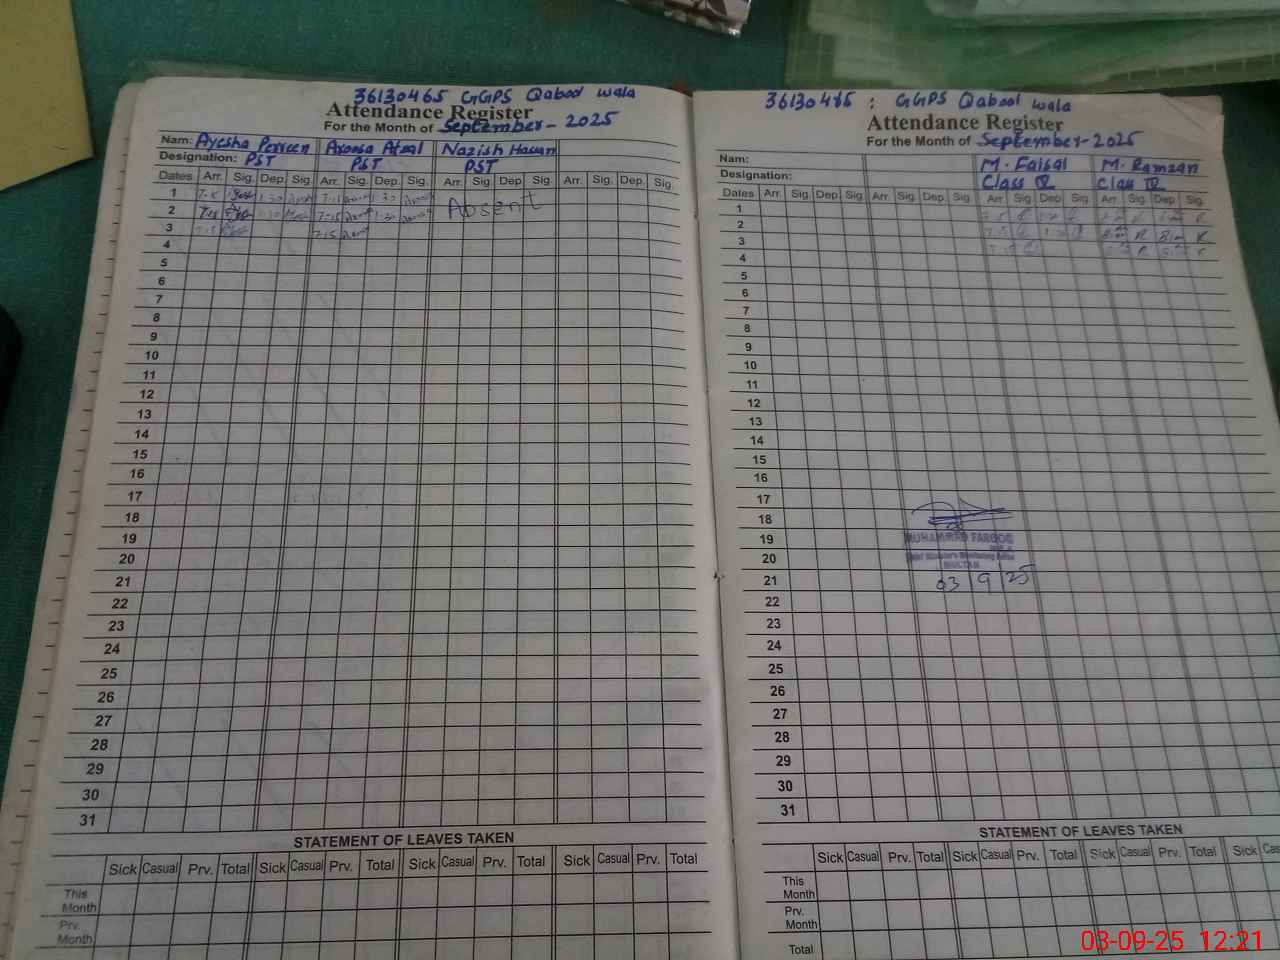 36130465 GGPS Qabool wala
Attendance Register
For the Month of September - 2025
Nam: Ayesha Perveen Aroosa Afzal Nazish Hassan
Designation: PST PST PST
Dates Arr. Sig. Dep. Sig. Arr. Sig. Dep. Sig. Arr. Sig. Dep. Sig. Arr. Sig. Dep. Sig.
1 7-15 1:30
2 7-15 7-15 1:30 Absent
3 7-15 7-15
4
5
6
7
8
9
10
11
12
13
14
15
16
17
18
19
20
21
22
23
24
25
26
27
28
29
30
31
STATEMENT OF LEAVES TAKEN
Sick Casual Prv. Total Sick Casual Prv. Total Sick Casual Prv. Total Sick Casual Prv. Total
This Month
Prv. Month
36130465 : GGPS Qabool wala
Attendance Register
For the Month of September - 2025
Nam: M. Faisal M. Ramzan
Designation: Class IV Class IV
Dates Arr. Sig. Dep. Sig. Arr. Sig. Dep. Sig. Arr. Sig. Dep. Sig. Arr. Sig. Dep. Sig.
1
2
3
4
5
6
7
8
9
10
11
12
13
14
15
16
17
18
19
20
21
22
23
24
25
26
27
28
29
30
31
MUHAMMAD FAROOQ
MULTAN
03/9/25
STATEMENT OF LEAVES TAKEN
Sick Casual Prv. Total Sick Casual Prv. Total Sick Casual Prv. Total Sick Cas
This Month
Prv. Month
Total
03-09-25 12:21